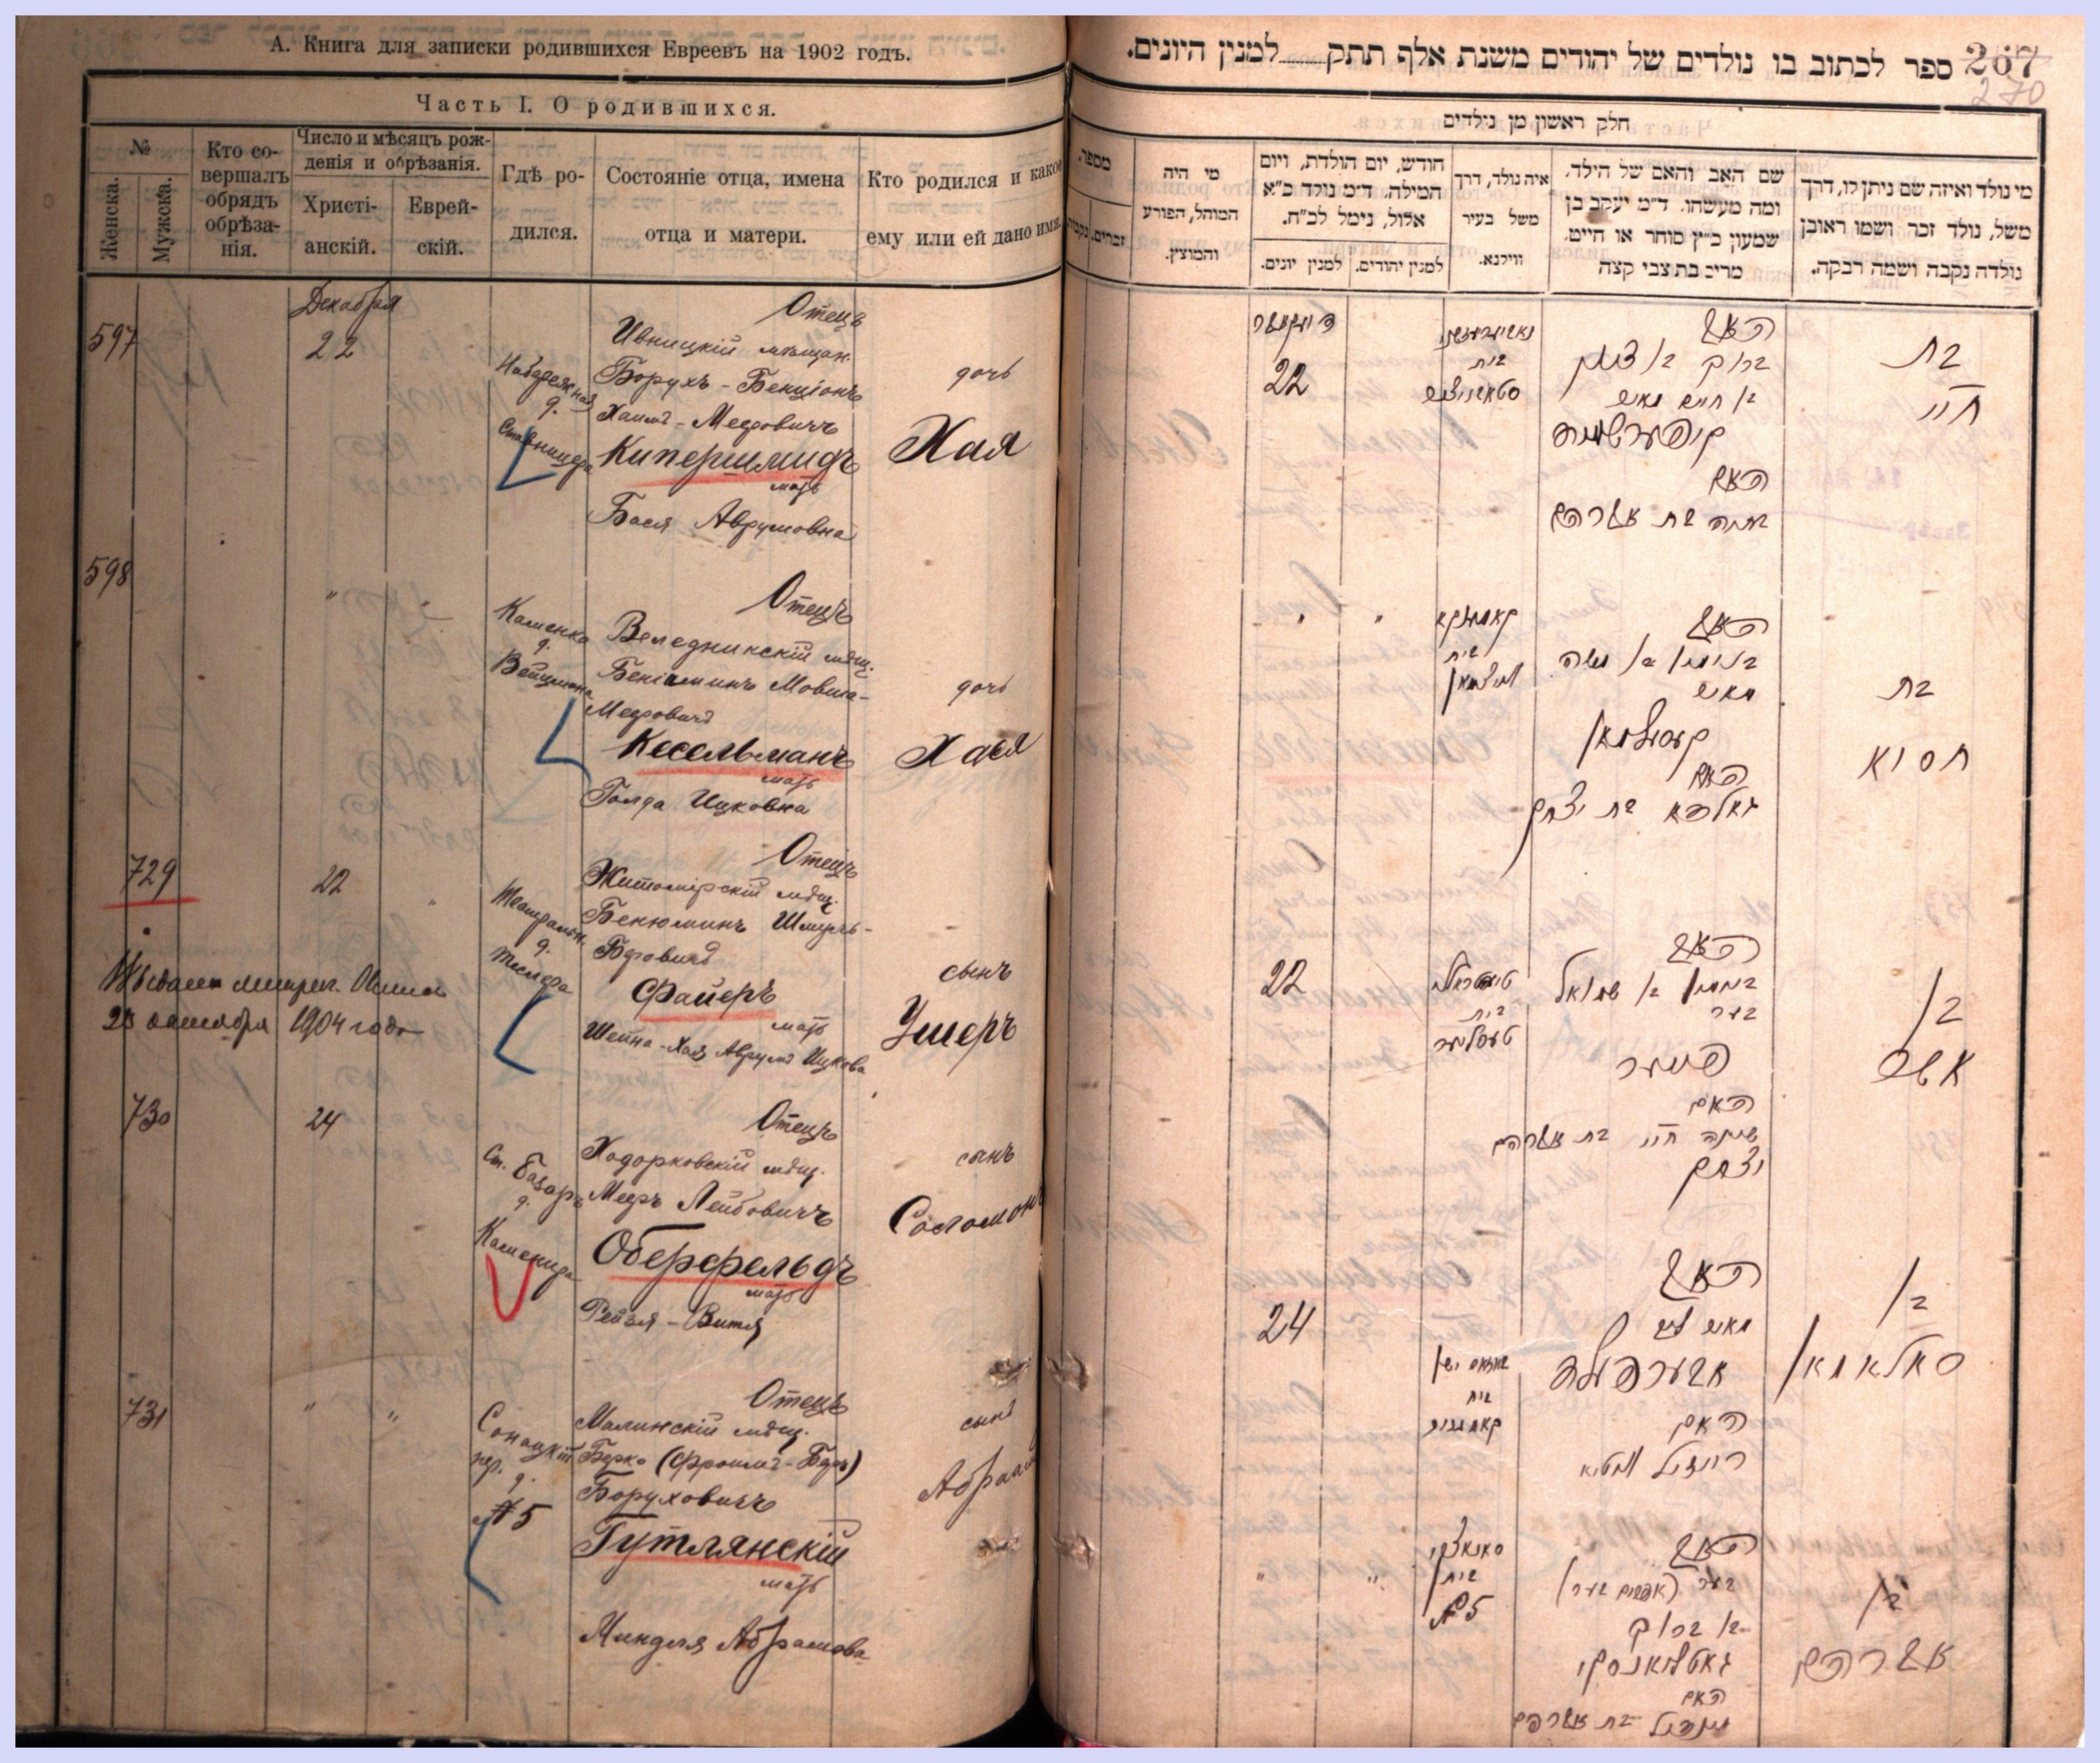 А. Книга для записки родившихся Евреевъ на 1902 годъ.
Часть I. О родившихся.
№
Женска.
Мужска.
Кто со-
вершалъ
обрядъ
обрѣза-
нія.
Число и мѣсяцъ рож-
денія и обрѣзанія.
Христі-
анскій.
Еврей-
скій.
Гдѣ ро-
дился.
Состояніе отца, имена
отца и матери.
Кто родился и какое
ему или ей дано имя.
597
Декабря
22
Отецъ
Ивницкій мѣщан.
Борухъ-Бенціонъ
Хаимъ-Меэровичъ
Кипершмидъ
мать
Бася Аврумовна
дочь
Хая
598
"
"
Каменка
д.
Вейцмана
Отецъ
Веледникскій мѣщ.
Беніаминъ Мовша-
Меэровичъ
Кесельманъ
мать
Голда Ицковна
дочь
Хася
729
22
"
Театральн.
д.
Теслера
Отецъ
Житомірскій мѣщ.
Бенюминъ Шмуль-
Беровичъ
Файеръ
мать
Шейна-Хая Аврумъ Ицкова
сынъ
Ушеръ
1904 года
730
24
Ст. Базаръ
д.
Отецъ
Ходорковскій мѣщ.
Меэръ Лейбовичъ
Оберфельдъ
мать
Рейзя-Витя
сынъ
Соломонъ
731
"
"
пер.
д.
№ 5
Отецъ
Малинскій мѣщ.
Берко (Фроимъ-Беръ)
Боруховичъ
Гутлянскій
мать
Миндля Абрамова
сынъ
Абрамъ
ספר לכתוב בו נולדים של יהודים משנת אלף תתק......למנין היונים.
267
270
חלק ראשון מן נולדים
מספר.
זכרים.
נקבות.
מי היה
המוהל, הפורע
והמוצץ.
חודש, יום הולדת, ויום
המילה. ד״מ נולד כ״א
אלול, נימל לכ״ח.
למנין יונים.
למנין יהודים.
איה נולד, דרך
משל בעיר
ווילנא.
שם האב והאם של הילד.
ומה מעשהו. ד״מ יעקב בן
שמעון כ״ץ סוחר או חייט.
מרים בת צבי קצה
מי נולד ואיזה שם ניתן לו, דרך
משל, נולד זכר ושמו ראובן
נולדה נקבה ושמה רבקה.
דעקאבר
22
בית
האב
ברוך בן ציון
בן חיים מאיר
קופערשמיד
האם
באסיה בת אברהם
בת
חיי
"
"
קאמענקא
בית
וויצמאן
האב
בנימין בן משה
מאיר
קעסעלמאן
האם
גאלדא בת יצחק
בת
חסיא
22
בית
טעסלער
האב
בנימין בן שמואל
בער
פייער
האם
שיינה חיי בת אברהם
יצחק
בן
אשר
24
בית
האב
מאיר ליב
אבערפעלד
האם
רייזיל וויטיא
בן
סאלאמאן
"
"
בית
№ 5
האב
בער (אפרים בער)
בן ברוך
גאטליאנסקי
האם
מינדיל בת אברהם
בן
אברהם